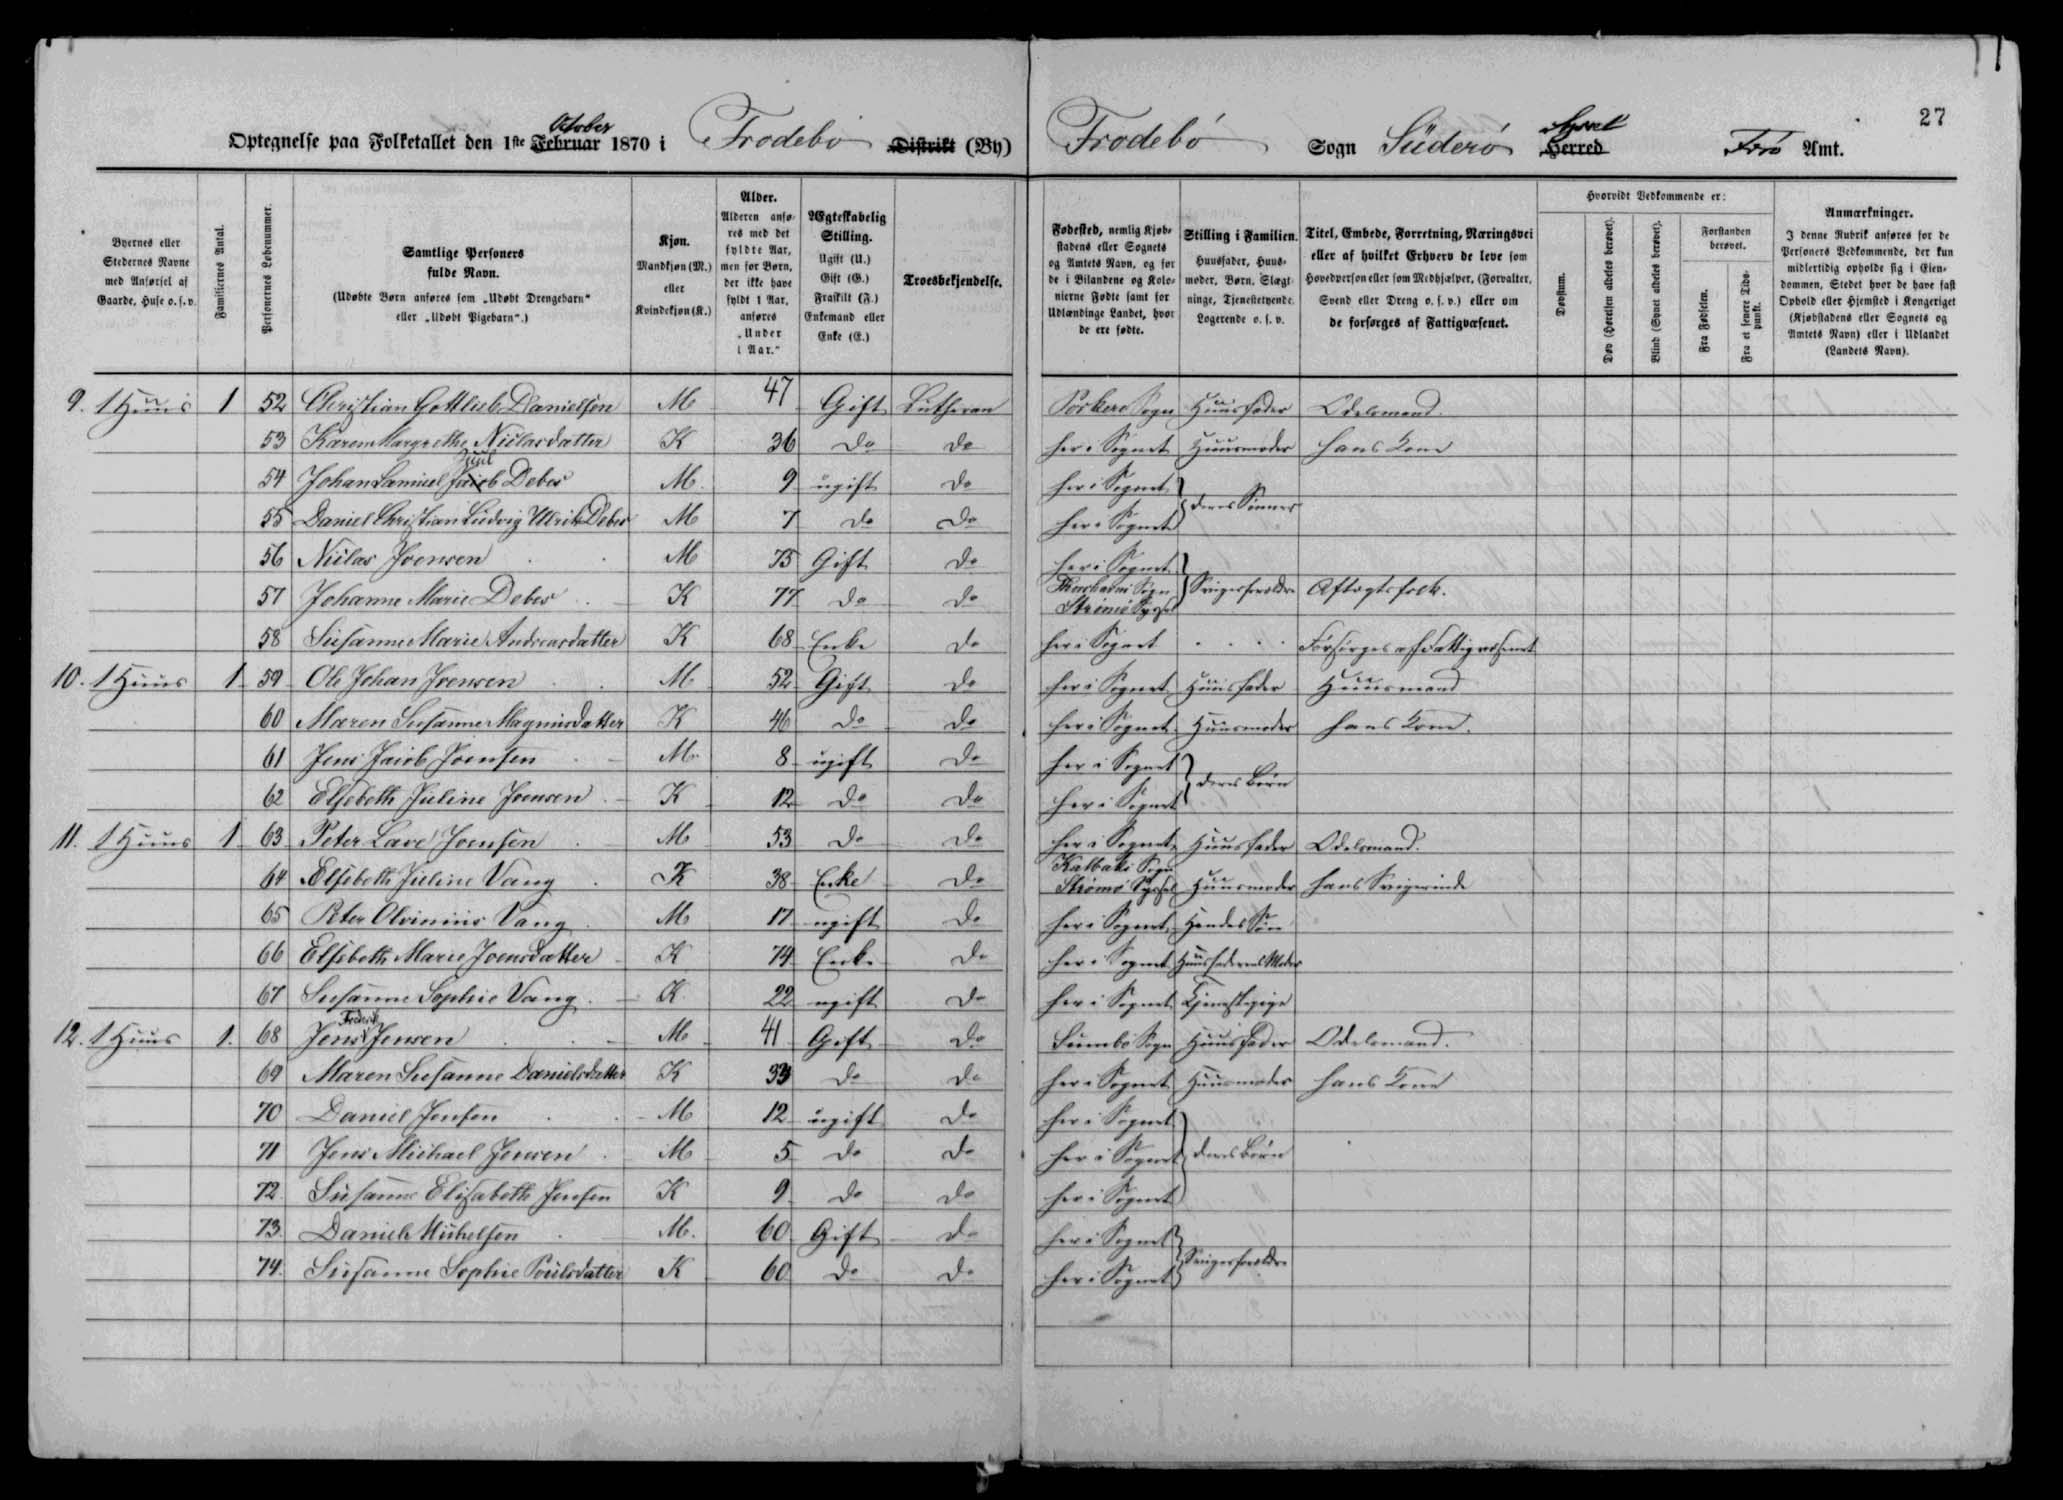 27
Optegnelse paa Folketallet den 1ste Februar October 1870 i Frodebö Distrikt (By) Frodebö Sogn Süderö Herred Syssel Frö Amt.
Byernes eller Stedernes Navne med Anførsel af Gaarde, Huse o. s. v.
Familiernes Antal.
Personernes Løbenummer.
Samtlige Personers fulde Navn. (Udøbte Børn anføres som „Udøbt Drengebarn" eller „Udøbt Pigebarn".)
Kjøn. Mandkjøn (M.) eller Kvindekjøn (K.)
Alder. Alderen anføres med det fyldte Aar, men for Børn, der ikke have fyldt 1 Aar, anføres „Under 1 Aar."
Ægteskabelig Stilling. Ugift (U.) Gift (G.) Fraskilt (F.) Enkemand eller Enke (E.)
Troesbekjendelse.
Fødested, nemlig Kjøbstadens eller Sognets og Amtets Navn, og for de i Bilandene og Kolonierne Fødte samt for Udlændinge Landet, hvor de ere fødte.
Stilling i Familien. Huusfader, Huusmoder, Børn, Slægtninge, Tjenestetyende, Logerende o. s. v.
Titel, Embede, Forretning, Næringsvei eller af hvilket Erhverv de leve som Hovedperson eller som Medhjælper, (Forvalter, Svend eller Dreng o. s. v.) eller om de forsørges af Fattigvæsenet.
Hvorvidt Vedkommende er:
Døvstum.
Døv (Hørelsen aldeles berøvet).
Blind (Synet aldeles berøvet).
Forstanden berøvet.
Fra Fødselen.
Fra et senere Tidspunkt.
Anmærkninger. I denne Rubrik anføres for de Personers Vedkommende, der kun midlertidig opholde sig i Eiendommen, Stedet hvor de have fast Ophold eller Hjemsted i Kongeriget (Kjøbstadens eller Sognets og Amtets Navn) eller i Udlandet (Landets Navn).
9. 1 Huus 1 52 Christian Gottlieb Danielsen M 47 Gift Lutheran Porkere Sogn Huusfader Odelsmand.
53 Karen Margrethe Niclasdatter K 36 do do her i Sognet Huusmoder hans Kone
54 Johan Samuel Jacob Juul Debes M. 9 ugift do her i Sognet deres Sönner
55 Daniel Christian Ludvig Ulrik Debes M 7 do do her i Sognet
56 Niclas Joensen M 75 Gift do her i Sognet
57 Johanne Marie Debes K 77 do do Thorshavns Sogn Strömö Syssel Svigerforældre Aftægtsfolk.
58 Susanne Marie Andreasdatter K 68 Enke do her i Sognet Forsörges af Fattigvæsenet
10. 1 Huus 1 59 Ole Johan Joensen M 52 Gift do her i Sognet Huusfader Huusmand
60 Maren Susanne Magnusdatter K 46 do do her i Sognet Huusmoder hans Kone.
61 Jens Jacob Joensen M 8 ugift do her i Sognet deres Börn
62 Elsebeth Juline Joensen K 12 do do her i Sognet
11. 1 Huus 1 63 Peter Lave Joensen M 53 do do her i Sognet Huusfader Odelsmand.
64 Elsebeth Juline Vang K 38 Enke do Kalbaks Sogn Strömö Syssel Huusmoder hans Svigerinde
65 Peter Olvinius Vang M 17 ugift do her i Sognet Hendes Sön
66 Elsebeth Marie Joensdatter K 74 Enke do her i Sognet Huusfaderens Moder
67 Susanne Sophie Vang K 22 ugift do her i Sognet Tjenestepige
12. 1 Huus 1. 68 Jens Frederik Jensen M 41 Gift do Sumbö Sogn Huusfader Odelsmand.
69 Maren Susanne Danielsdatter K 33 do do her i Sognet Huusmoder hans Kone
70 Daniel Jensen M 12 ugift do her i Sognet
71 Jens Michael Jensen M 5 do do her i Sognet deres Börn
72. Susanne Elisabeth Jensen K 9 do do her i Sognet
73. Daniel Michelsen M. 60 Gift do her i Sognet Svigerforældre
74. Susanne Sophie Poulsdatter K 60 do do her i Sognet